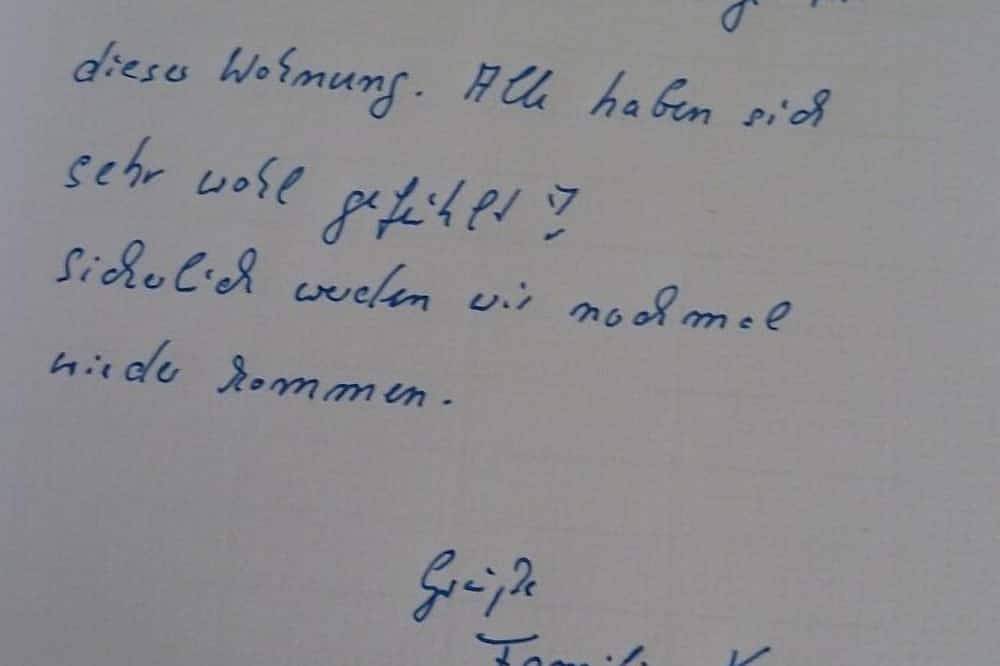 dieser Wohnung. Alle haben sich
sehr wohl gefühlt!
Sicherlich werden wir nochmal
wieder kommen.
Grüße
Familie K